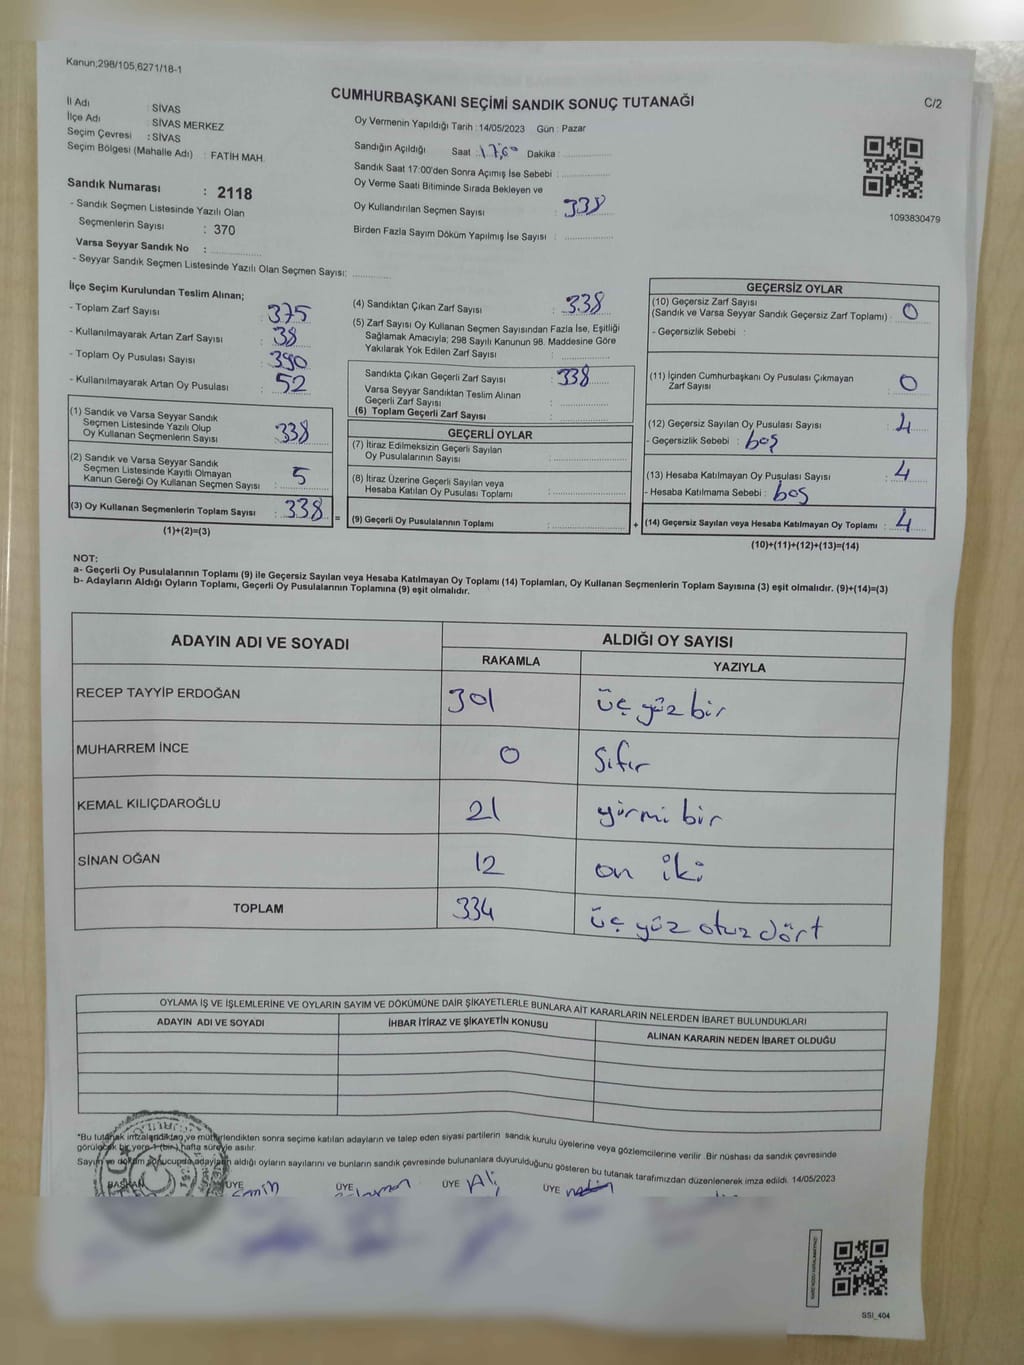 Kanun;298/105,6271/18-1
CUMHURBAŞKANI SEÇİMİ SANDIK SONUÇ TUTANAĞI
C/2
İl Adı : SİVAS
İlçe Adı : SİVAS MERKEZ
Seçim Çevresi : SİVAS
Seçim Bölgesi (Mahalle Adı) : FATİH MAH.
Sandık Numarası : 2118
- Sandık Seçmen Listesinde Yazılı Olan
Seçmenlerin Sayısı : 370
Varsa Seyyar Sandık No :
- Seyyar Sandık Seçmen Listesinde Yazılı Olan Seçmen Sayısı:
Oy Vermenin Yapıldığı Tarih : 14/05/2023 Gün : Pazar
Sandığın Açıldığı Saat : 17,00 Dakika :
Sandık Saat 17:00'den Sonra Açımış İse Sebebi :
Oy Verme Saati Bitiminde Sırada Bekleyen ve
Oy Kullandırılan Seçmen Sayısı : 338
Birden Fazla Sayım Döküm Yapılmış İse Sayısı :
1093830479
İlçe Seçim Kurulundan Teslim Alınan;
- Toplam Zarf Sayısı : 375
- Kullanılmayarak Artan Zarf Sayısı : 38
- Toplam Oy Pusulası Sayısı : 390
- Kullanılmayarak Artan Oy Pusulası : 52
(1) Sandık ve Varsa Seyyar Sandık
Seçmen Listesinde Yazılı Olup
Oy Kullanan Seçmenlerin Sayısı : 338
(2) Sandık ve Varsa Seyyar Sandık
Seçmen Listesinde Kayıtlı Olmayan
Kanun Gereği Oy Kullanan Seçmen Sayısı : 5
(3) Oy Kullanan Seçmenlerin Toplam Sayısı : 338
(1)+(2)=(3)
(4) Sandıktan Çıkan Zarf Sayısı : 338
(5) Zarf Sayısı Oy Kullanan Seçmen Sayısından Fazla İse, Eşitliği
Sağlamak Amacıyla; 298 Sayılı Kanunun 98. Maddesine Göre
Yakılarak Yok Edilen Zarf Sayısı :
Sandıkta Çıkan Geçerli Zarf Sayısı : 338
Varsa Seyyar Sandıktan Teslim Alınan
Geçerli Zarf Sayısı :
(6) Toplam Geçerli Zarf Sayısı :
GEÇERLİ OYLAR
(7) İtiraz Edilmeksizin Geçerli Sayılan
Oy Pusulalarının Sayısı :
(8) İtiraz Üzerine Geçerli Sayılan veya
Hesaba Katılan Oy Pusulası Toplamı :
= (9) Geçerli Oy Pusulalarının Toplamı : +
GEÇERSİZ OYLAR
(10) Geçersiz Zarf Sayısı
(Sandık ve Varsa Seyyar Sandık Geçersiz Zarf Toplamı) : 0
- Geçersizlik Sebebi :
(11) İçinden Cumhurbaşkanı Oy Pusulası Çıkmayan
Zarf Sayısı : 0
(12) Geçersiz Sayılan Oy Pusulası Sayısı : 4
- Geçersizlik Sebebi : boş
(13) Hesaba Katılmayan Oy Pusulası Sayısı : 4
- Hesaba Katılmama Sebebi : boş
(14) Geçersiz Sayılan veya Hesaba Katılmayan Oy Toplamı : 4
(10)+(11)+(12)+(13)=(14)
NOT:
a- Geçerli Oy Pusulalarının Toplamı (9) ile Geçersiz Sayılan veya Hesaba Katılmayan Oy Toplamı (14) Toplamları, Oy Kullanan Seçmenlerin Toplam Sayısına (3) eşit olmalıdır. (9)+(14)=(3)
b- Adayların Aldığı Oyların Toplamı, Geçerli Oy Pusulalarının Toplamına (9) eşit olmalıdır.
ADAYIN ADI VE SOYADI ALDIĞI OY SAYISI
RAKAMLA YAZIYLA
RECEP TAYYİP ERDOĞAN 301 üç yüz bir
MUHARREM İNCE 0 Sıfır
KEMAL KILIÇDAROĞLU 21 yirmi bir
SİNAN OĞAN 12 on iki
TOPLAM 334 üç yüz otuz dört
OYLAMA İŞ VE İŞLEMLERİNE VE OYLARIN SAYIM VE DÖKÜMÜNE DAİR ŞİKAYETLERLE BUNLARA AİT KARARLARIN NELERDEN İBARET BULUNDUKLARI
ADAYIN ADI VE SOYADI İHBAR İTİRAZ VE ŞİKAYETİN KONUSU ALINAN KARARIN NEDEN İBARET OLDUĞU
*Bu tutanak imzalandıktan ve mühürlendikten sonra seçime katılan adayların ve talep eden siyasi partilerin sandık kurulu üyelerine veya gözlemcilerine verilir. Bir nüshası da sandık çevresinde
görülecek bir yere 1 (bir) hafta süreyle asılır.
Sayım ve döküm sonucunda adayların aldığı oyların sayılarını ve bunların sandık çevresinde bulunanlara duyurulduğunu gösteren bu tutanak tarafımızdan düzenlenerek imza edildi. 14/05/2023
BAŞKAN ÜYE Emin ÜYE Süleyman ÜYE Ali ÜYE
SSI_404